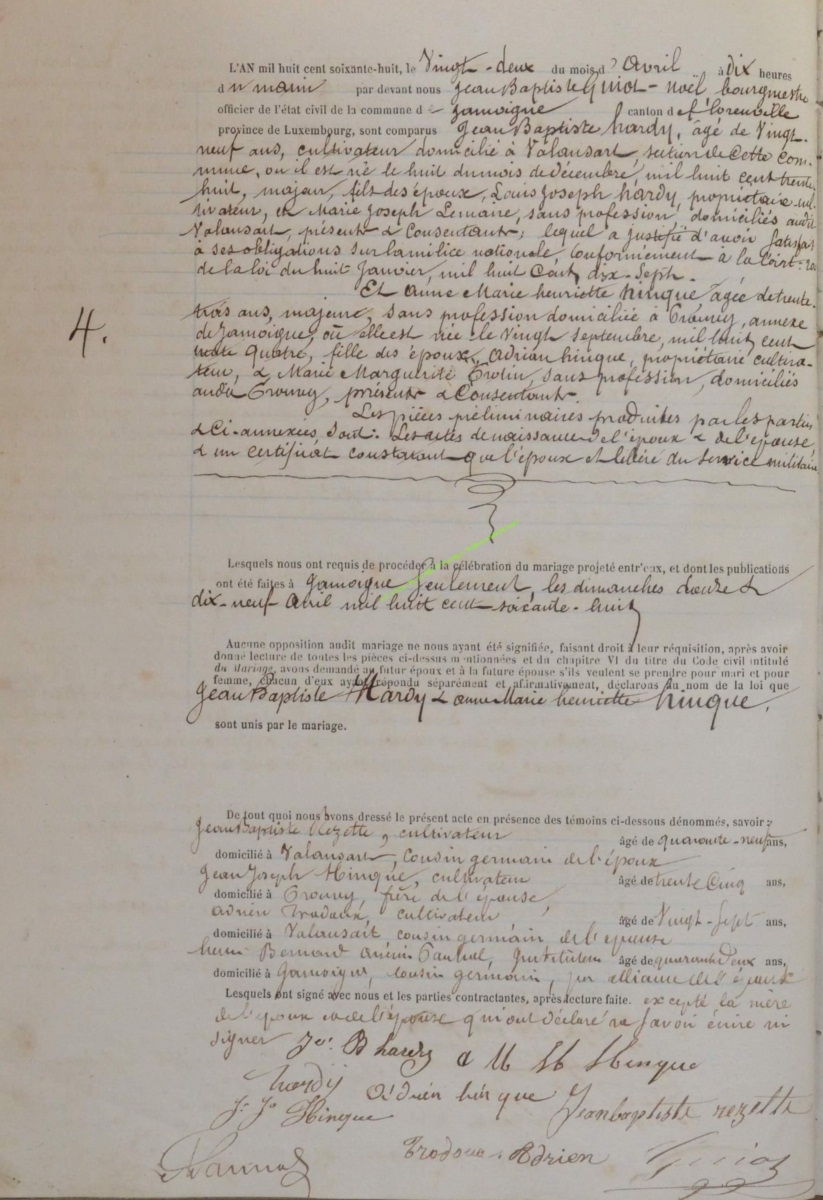 L'AN mil huit cent soixante-huit, le Vingt-deux du mois d'Avril à Dix heures
du matin par devant nous Jean Baptiste Guiot-Noël bourgmestre
officier de l'état civil de la commune de Jamoigne canton de Florenville
province de Luxembourg, sont comparus Jean Baptiste hardy, âgé de Vingt-
neuf ans, cultivateur domicilié à Valansart, section de cette com-
mune, ou il est né le huit du mois de Décembre, mil huit cent trente
huit, majeur, fils des époux, Louis Joseph hardy, propriétaire cul-
tivateur, et Marie Joseph Lemaire, sans profession domiciliés audit
Valansart, présents & Consentants; lequel a justifié d'avoir satisfait
à ses obligations sur la milice nationale, Conformément à la
de la loi du huit Janvier, mil huit Cent dix-Sept.
Et Anne Marie henriette hinque, âgée de trente-
trois ans, majeure, sans profession domiciliée à Prouvy, annexe
de Jamoigne, où elle est née le Vingt septembre, mil huit cent
trente quatre, fille des époux, Adrian hinque, propriétaire cultiva-
teur, & Marie Marguerite Trotin, sans profession, domiciliés
audit Prouvy, présents & Consentants.
4.
Les pièces préliminaires produites par les parties
& Ci-annexées, sont: Les actes de naissance de l'époux & de l'épouse
& un certificat constatant que l'époux est libéré du service militaire
Lesquels nous ont requis de procéder à la célébration du mariage projeté entr'eux, et dont les publications
ont été faites à Jamoigne seulement, les dimanches douze &
dix-neuf Avril mil huit cent soixante-huit
Aucune opposition audit mariage ne nous ayant été signifiée, faisant droit à leur réquisition, après avoir
donné lecture de toutes les pièces ci-dessus mentionnées et du chapitre VI du titre du Code civil intitulé
du Mariage, avons demandé au futur époux et à la future épouse s'ils veulent se prendre pour mari et pour
femme, chacun d'eux ayant répondu séparément et affirmativement, déclarons au nom de la loi que
Jean Baptiste Hardy & Anne Marie henriette hinque,
sont unis par le mariage.
De tout quoi nous avons dressé le présent acte en présence des témoins ci-dessous dénommés, savoir :
Jean Baptiste Rezette, cultivateur âgé de quarante-neuf ans,
domicilié à Valansart, Cousin germain de l'époux
Jean Joseph Hinque, cultivateur âgé de trente Cinq ans,
domicilié à Prouvy, frère de l'épouse
Adrien Trodoux, cultivateur âgé de Vingt-Sept ans,
domicilié à Valansart cousin germain, de l'épouse
henri Bernard Pauhal, Instituteur âgé de quarante Deux ans,
domicilié à Jamoigne, cousin germain, par alliance de l'épouse
Lesquels ont signé avec nous et les parties contractantes, après lecture faite. excepté la mère
de l'époux & de l'épouse qui ont déclaré ne savoir écrire ni
signer Jn. B hardy A M H Hinque
hardy Adrien hinque Jean baptiste rezette
J. J. Hinque
Trodoux Adrien Guiot